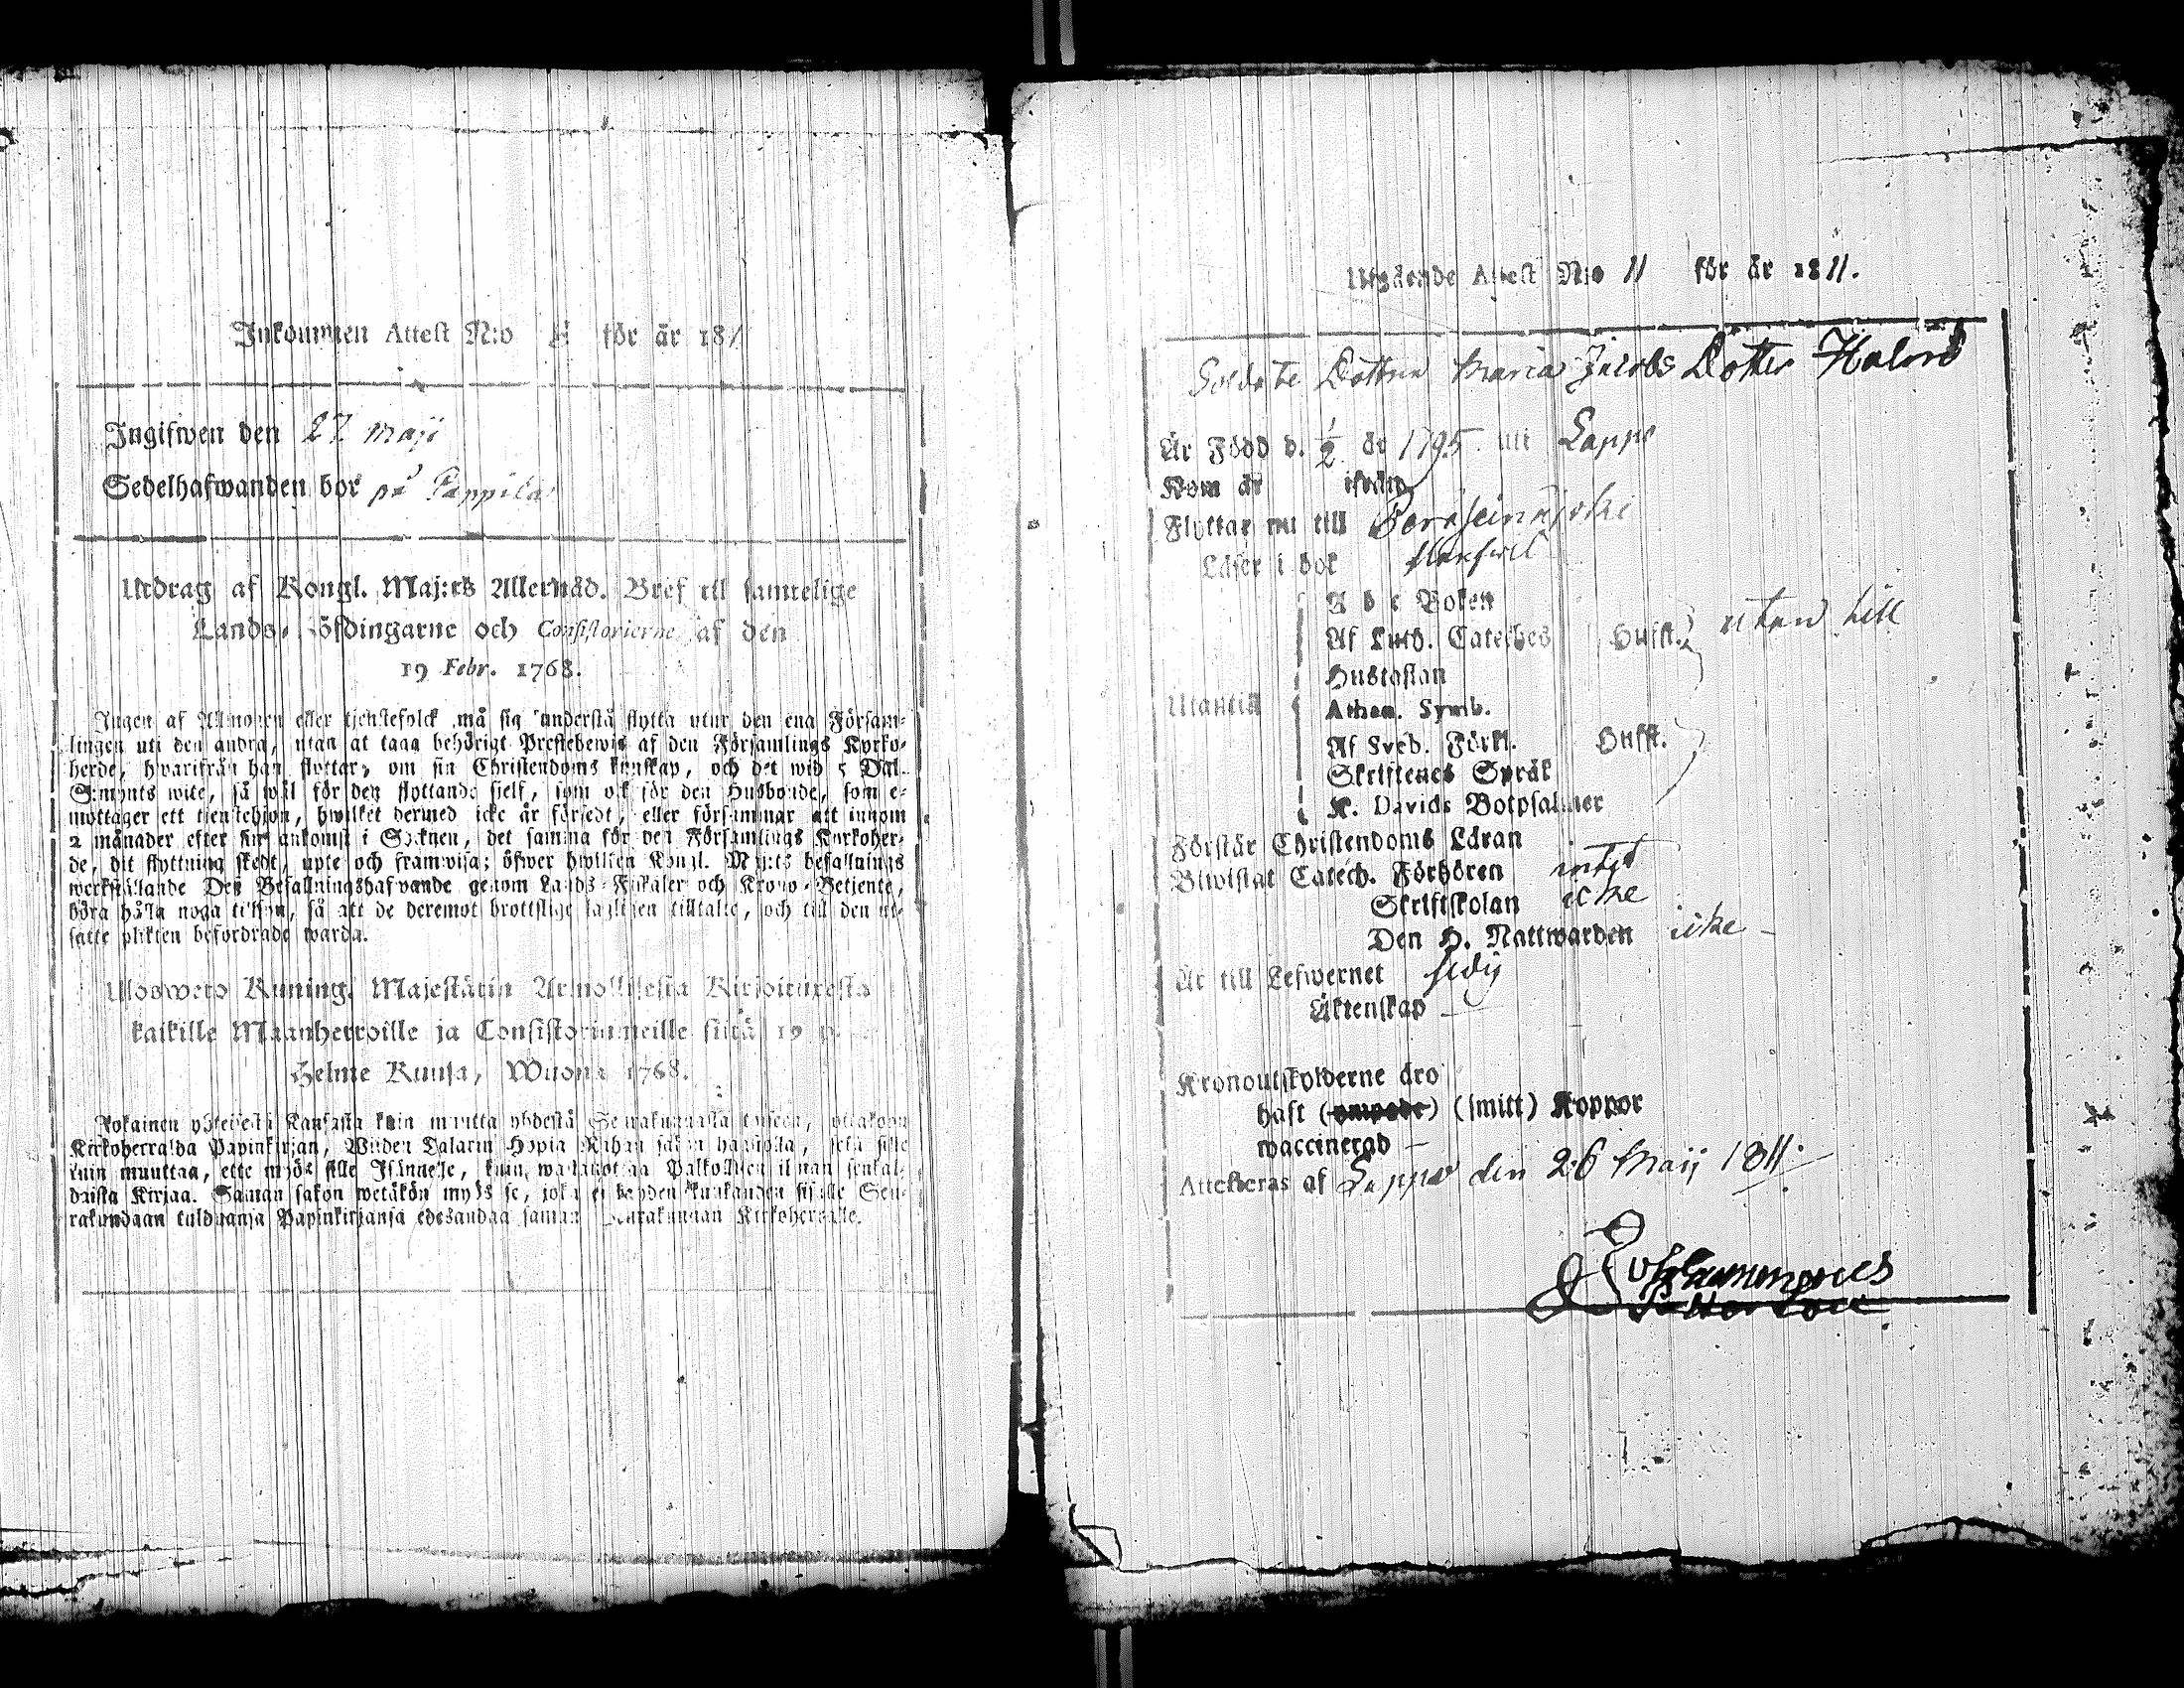 Inkommen Attest N:o för år 181
Ingifwen den 27 Maji
Sedelhafwanden bor på Pappila
Utdrag af Kongl. Maj:ts Allernåd. Bref til samtelige
Lands-Höfdingarne och Consistorierne af den
19 Febr. 1768.
Ingen af Allmogen eller tjenstefolck må sig understå flytta utur den ena Försam-
lingen uti den andra, utan at taga behörigt Prestebewis af den Församlings Kyrko-
herde, hwarifrån han flyttar, om sin Christendoms kunskap, och det wid 5 Dal.
S:mynts wite, så wäl för den flyttande sjelf, som ock för den Husbonde, som e-
mottager ett tjenstehjon, hwilket dermed icke är försedt, eller försummar att innom
2 månader efter sin ankomst i Socknen, det samma för den Församlings Kyrkoher-
de, dit flyttning skedt, upte och framwisa; öfwer hwilken Kongl. Maj:ts befallnings
werkställande Des Befallningshafwande genom Lands-Fiskaler och Krono-Betjente,
böra hålla noga tilsyn, så att de deremot brottslige lagligen tilltalte, och till den ut-
satte plikten befordrade warda.
Ulosweto Kuning. Majestätin Armollisesta Kirjoituxesta
kaikille Maanherroille ja Consistoriumeille siitä 19 p.
Helme Kuusa, Wuona 1768.
Jokainen yhteisestä Kansasta kuin muutta yhdestä Seurakunnasta toiseen, ottakoon
Kirkoherralda Papinkirjan, Wiiden Dalarin Hopia Rahan sakon haastolla, sekä sille
kuin muuttaa, ette myös sille Isännelle, kuin wastanottaa Palkollisen ilman senkal-
daista Kirjaa. Saman sakon wetäkön myös se, joka ei kahden kuukauden sisälle Seu-
rakundaan tulduansa Papinkirjansa edesandaa saman Seurakunnan Kirkoherralle.
Utgående Attest N:o 11 för år 1811.
Soldate Dottren Maria Jacobs Dotter Holm
Är Född d. 1/2 år 1795 uti Lappo
Kom år ifrån
Flyttar nu till Peräseinäjoki
Läser i bok
A b c Boken
Af Luth. Cateches Hufst. utan till
Hustaflan
Utantill Athan. Symb.
Af Sveb. Förkl. Hufst.
Skriftenes Språk
K. Davids Botpsalmer
Förstår Christendoms Läran
Biwistat Catech. Förhören intet
Skriftskolan icke
Den H. Nattwarden icke -
Är till Lefwernet sedig
Äktenskap -
Kronoutskylderne äro
haft (ympade) (smitt) Koppor
waccinerad -
Attesteras af Lappo den 26 Maij 1811.